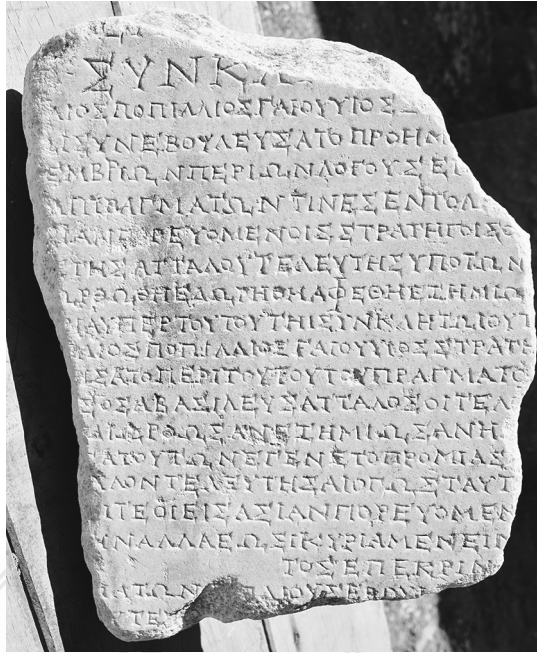 ΣΥΝΚΛ
ΑΙΟΣΠΟΠΙΛΛΙΟΣΓΑΙΟΥΥΙΟΣΣ
ΙΣΥΝΕΒΟΥΛΕΥΣΑΤΟΠΡΟΗΜ
ΕΜΒΡΙΩΝΠΕΡΙΩΝΛΟΓΟΥΣΕΠ
ΙΠΡΑΓΜΑΤΩΝΤΙΝΕΣΕΝΤΟΛ
ΙΑΝΠΟΡΕΥΟΜΕΝΟΙΣΣΤΡΑΤΗΓΟΙΣΟ
ΤΗΣΑΤΤΑΛΟΥΤΕΛΕΥΤΗΣΥΠΟΤΩΝ
ΩΡΘΩΘΗΕΔΩΡΗΘΗΑΦΕΘΗΕΖΗΜΙΩ
ΙΑΥΠΕΡΤΟΥΤΟΥΤΗΙΣΥΝΚΛΗΤΩΙΟΥ
ΑΙΟΣΠΟΠΙΛΛΙΟΣΓΑΙΟΥΥΙΟΣΣΤΡΑΤΗ
ΙΣΑΤΟΠΕΡΙΤΟΥΤΟΥΤΟΥΠΡΑΓΜΑΤΟ
ΟΣΑΒΑΣΙΛΕΥΣΑΤΤΑΛΟΣΟΙΤΕΛ
ΔΙΩΡΘΩΣΑΝΕΖΗΜΙΩΣΑΝΗ
ΑΤΟΥΤΩΝΕΓΕΝΕΤΟΠΡΟΜΙΑΣ
ΑΛΟΝΤΕΛΕΥΤΗΣΑΙΟΠΩΣΤΑΥΤ
ΙΤΕΟΙΕΙΣΑΣΙΑΝΠΟΡΕΥΟΜΕΝ
ΙΝΑΛΛΑΕΩΣΙΚΥΡΙΑΜΕΝΕΙΝ
ΤΟΣΕΠΕΚΡΙΝ
ΜΑΤΩΝ
ΤΕΣ